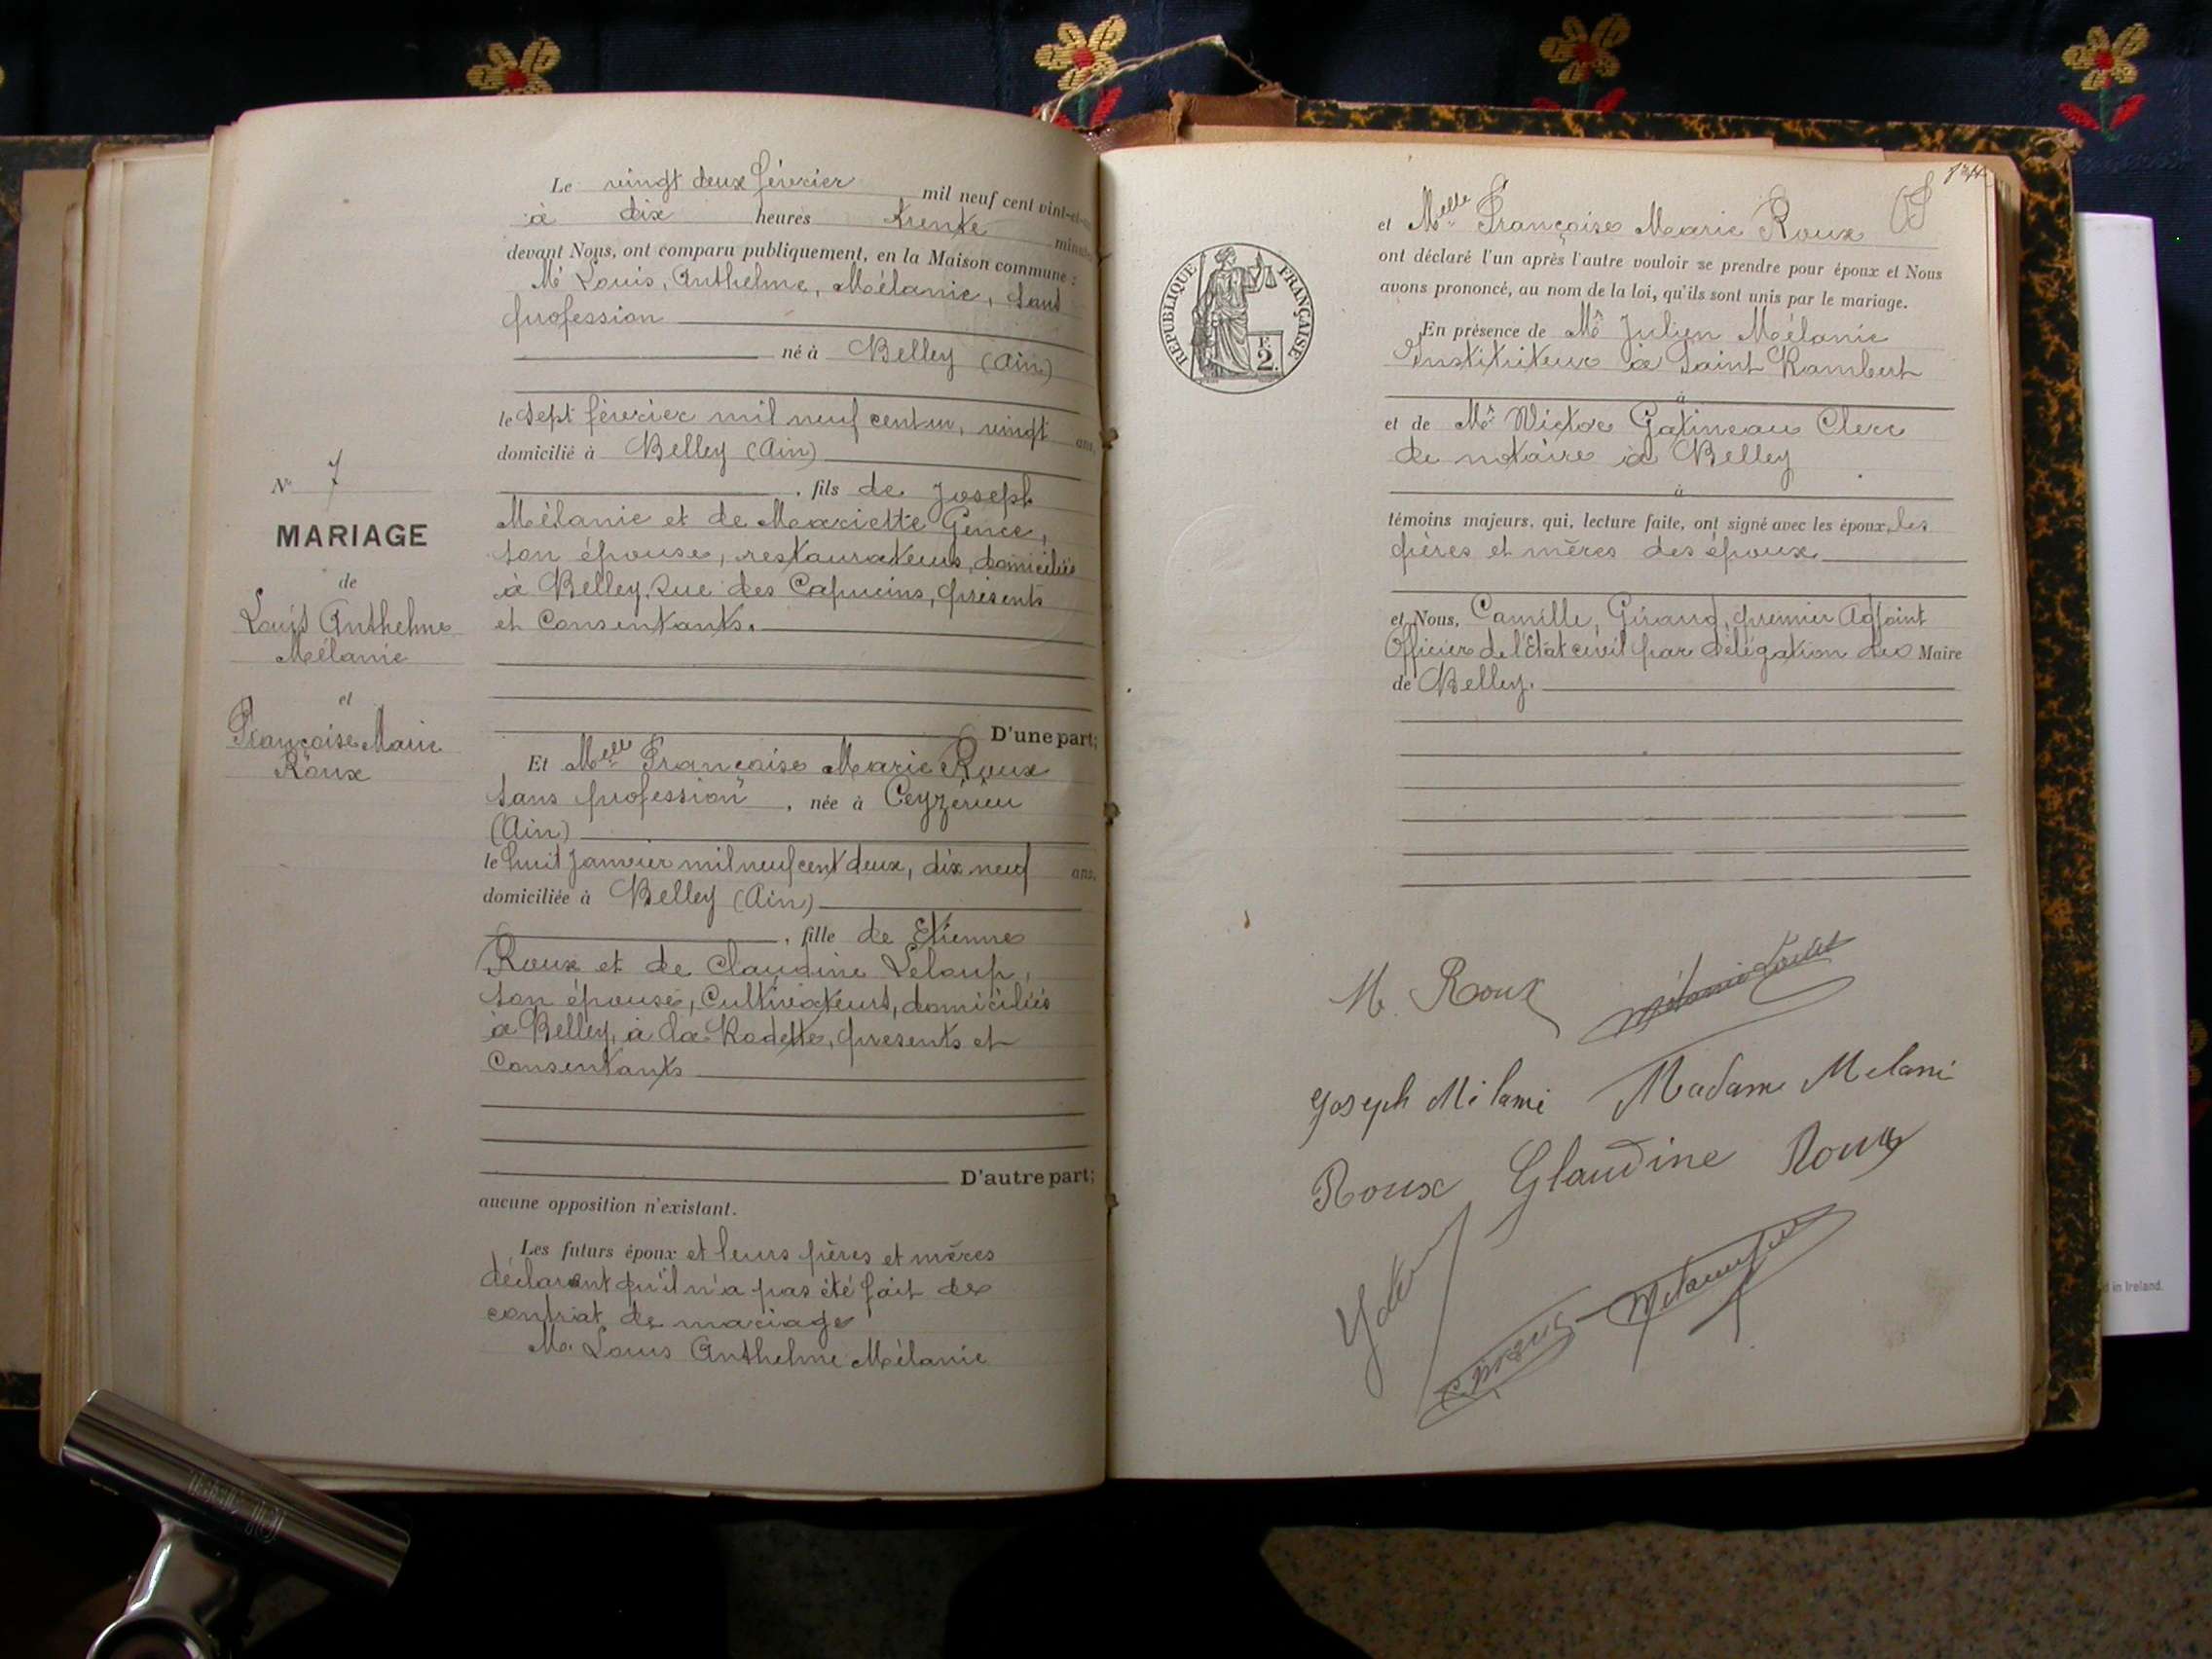 Le vingt deux février mil neuf cent vint-et-un
à dix heures trente minutes
devant Nous, ont comparu publiquement, en la Maison commune :
Mr Louis, Anthelme, Mélanie, sans
profession
né à Belley (Ain)
le sept février mil neuf cent un, vingt ans,
domicilié à Belley (Ain)
, fils de Joseph
Mélanie et de Mariette Gence,
son épouse, restaurateurs, domiciliés
à Belley, Rue des Capucins, présents
et Consentants.
D'une part;
Et Melle Françoise Marie Roux
sans profession, née à Ceyzérieu
(Ain)
le huit Janvier mil neuf cent deux, dix neuf ans,
domiciliée à Belley (Ain)
, fille de Etienne
Roux et de Claudine Leloup,
son épouse, Cultivateurs, domiciliés
à Belley, à la Rodette, présents et
Consentants
D'autre part;
aucune opposition n'existant.
Les futurs époux et leurs pères et mères
déclarent qu'il n'a pas été fait de
contrat de mariage
Mr Louis Anthelme Mélanie
N° 7
MARIAGE
de
Louis Anthelme
Mélanie
et
Françoise Marie
Roux
et Melle Françoise Marie Roux
ont déclaré l'un après l'autre vouloir se prendre pour époux et Nous
avons prononcé, au nom de la loi, qu'ils sont unis par le mariage.
En présence de Mr Julien Mélanie
Instituteur à Saint Rambert
à
et de Mr Victor Gatineau Clerc
de notaire à Belley
à
témoins majeurs, qui, lecture faite, ont signé avec les époux, les
pères et mères des époux
et Nous, Camille, Girand, premier Adjoint
Officier de l'Etat civil par délégation du Maire
de Belley.
RÉPUBLIQUE FRANÇAISE
F.
2.
M. Roux Mélanie Louis
Joseph Mélami Madame Melani
Roux Glaudine Roux
d in Ireland.